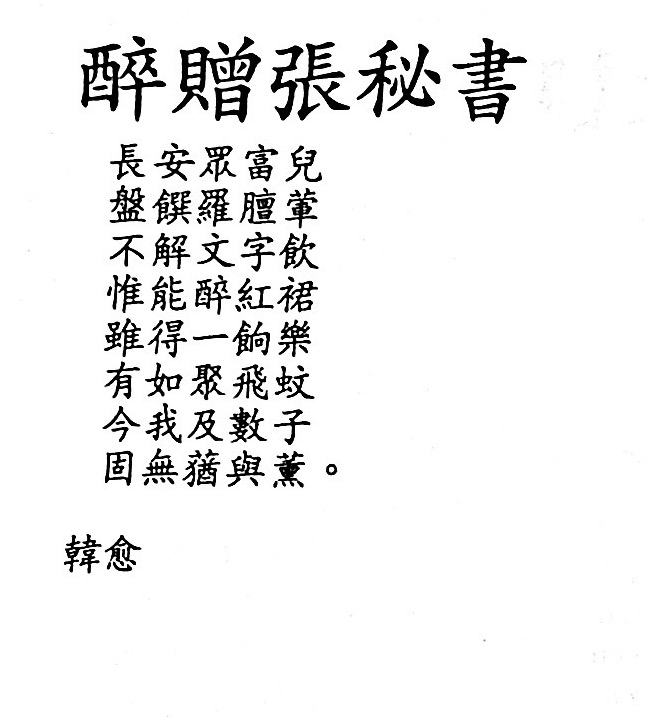 醉贈張秘書
長安眾富兒
盤饌羅膻葷
不解文字飲
惟能醉紅裙
雖得一餉樂
有如聚飛蚊
今我及數子
固無蕕與薰。
韓愈